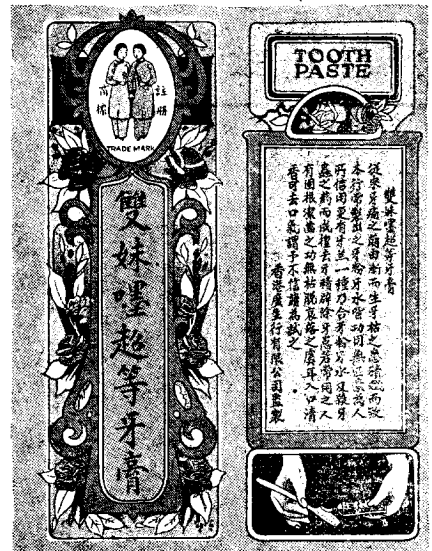 註冊
商標
TRADE MARK
雙妹嚜超等牙膏
TOOTH
PASTE
雙妹嚜超等牙膏
從來牙痛之由而生牙枯之患積而致
本行常製出之牙粉牙水皆功無為人
所信用更有牙一種乃合牙粉牙水及殺牙
蟲之藥而成擅去牙積辟除牙患若常用之人
有固根潔齒之功無枯脫衰落之虞耳入口清
香可去口氣謂予不信請為試之
香港廣生行有限公司監製